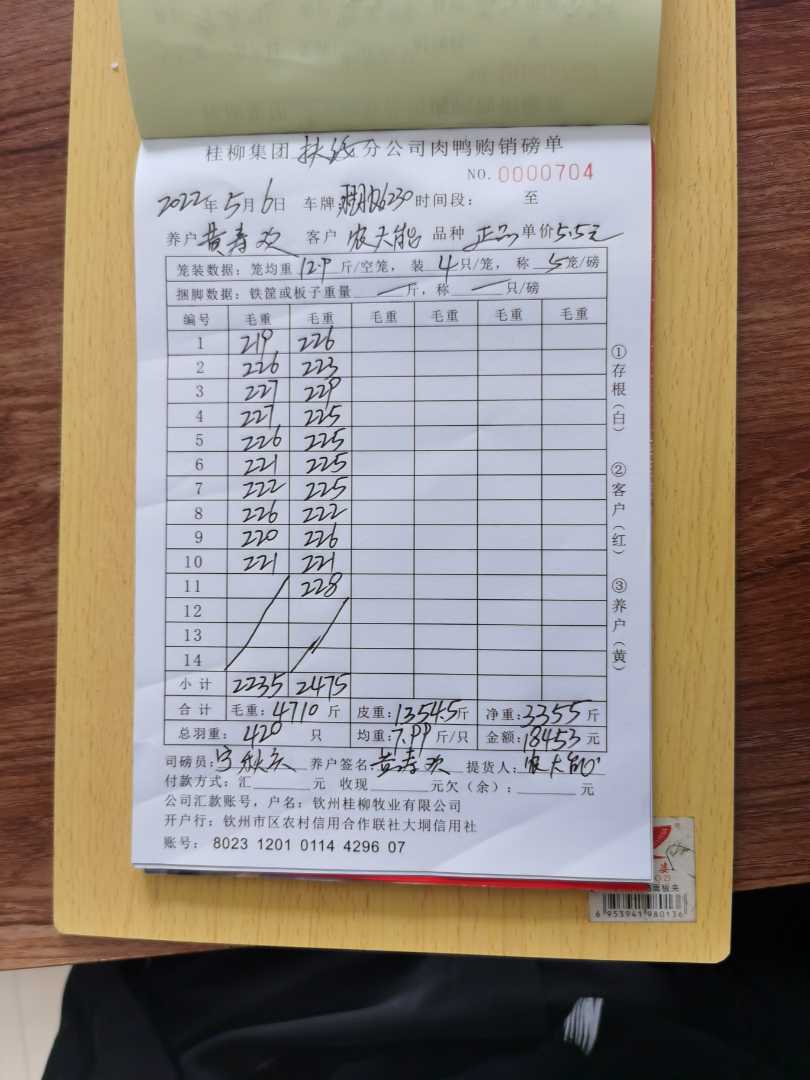 桂柳集团 扶绥 分公司肉鸭购销磅单
NO. 0000704
2022年5月6日 车牌: 6230 时间段: 至
养户 黄寿欢 客户 农大能 品种 正品 单价 5.5元
笼装数据: 笼均重 12.9 斤/空笼, 装 4 只/笼, 称 5 笼/磅
捆脚数据: 铁筐或板子重量 — 斤, 称 — 只/磅
编号 毛重 毛重 毛重 毛重 毛重 毛重
1 219 226
2 226 223
3 227 229
4 227 225
5 226 225
6 221 225
7 222 225
8 226 222
9 220 226
10 221 221
11 228
12
13
14
小计 2235 2475
合计 毛重: 4710 斤 皮重: 1354.5斤 净重: 3355 斤
总羽重: 420 只 均重: 7.99 斤/只 金额: 18453 元
司磅员: 养户签名: 黄寿欢 提货人: 农大能
付款方式: 汇 元 收现 元欠(余): 元
公司汇款账号, 户名: 钦州桂柳牧业有限公司
开户行: 钦州市区农村信用合作联社大垌信用社
账号: 8023 1201 0114 4296 07
①存根(白) ②客户(红) ③养户(黄)
面板夹
6 953941 980136